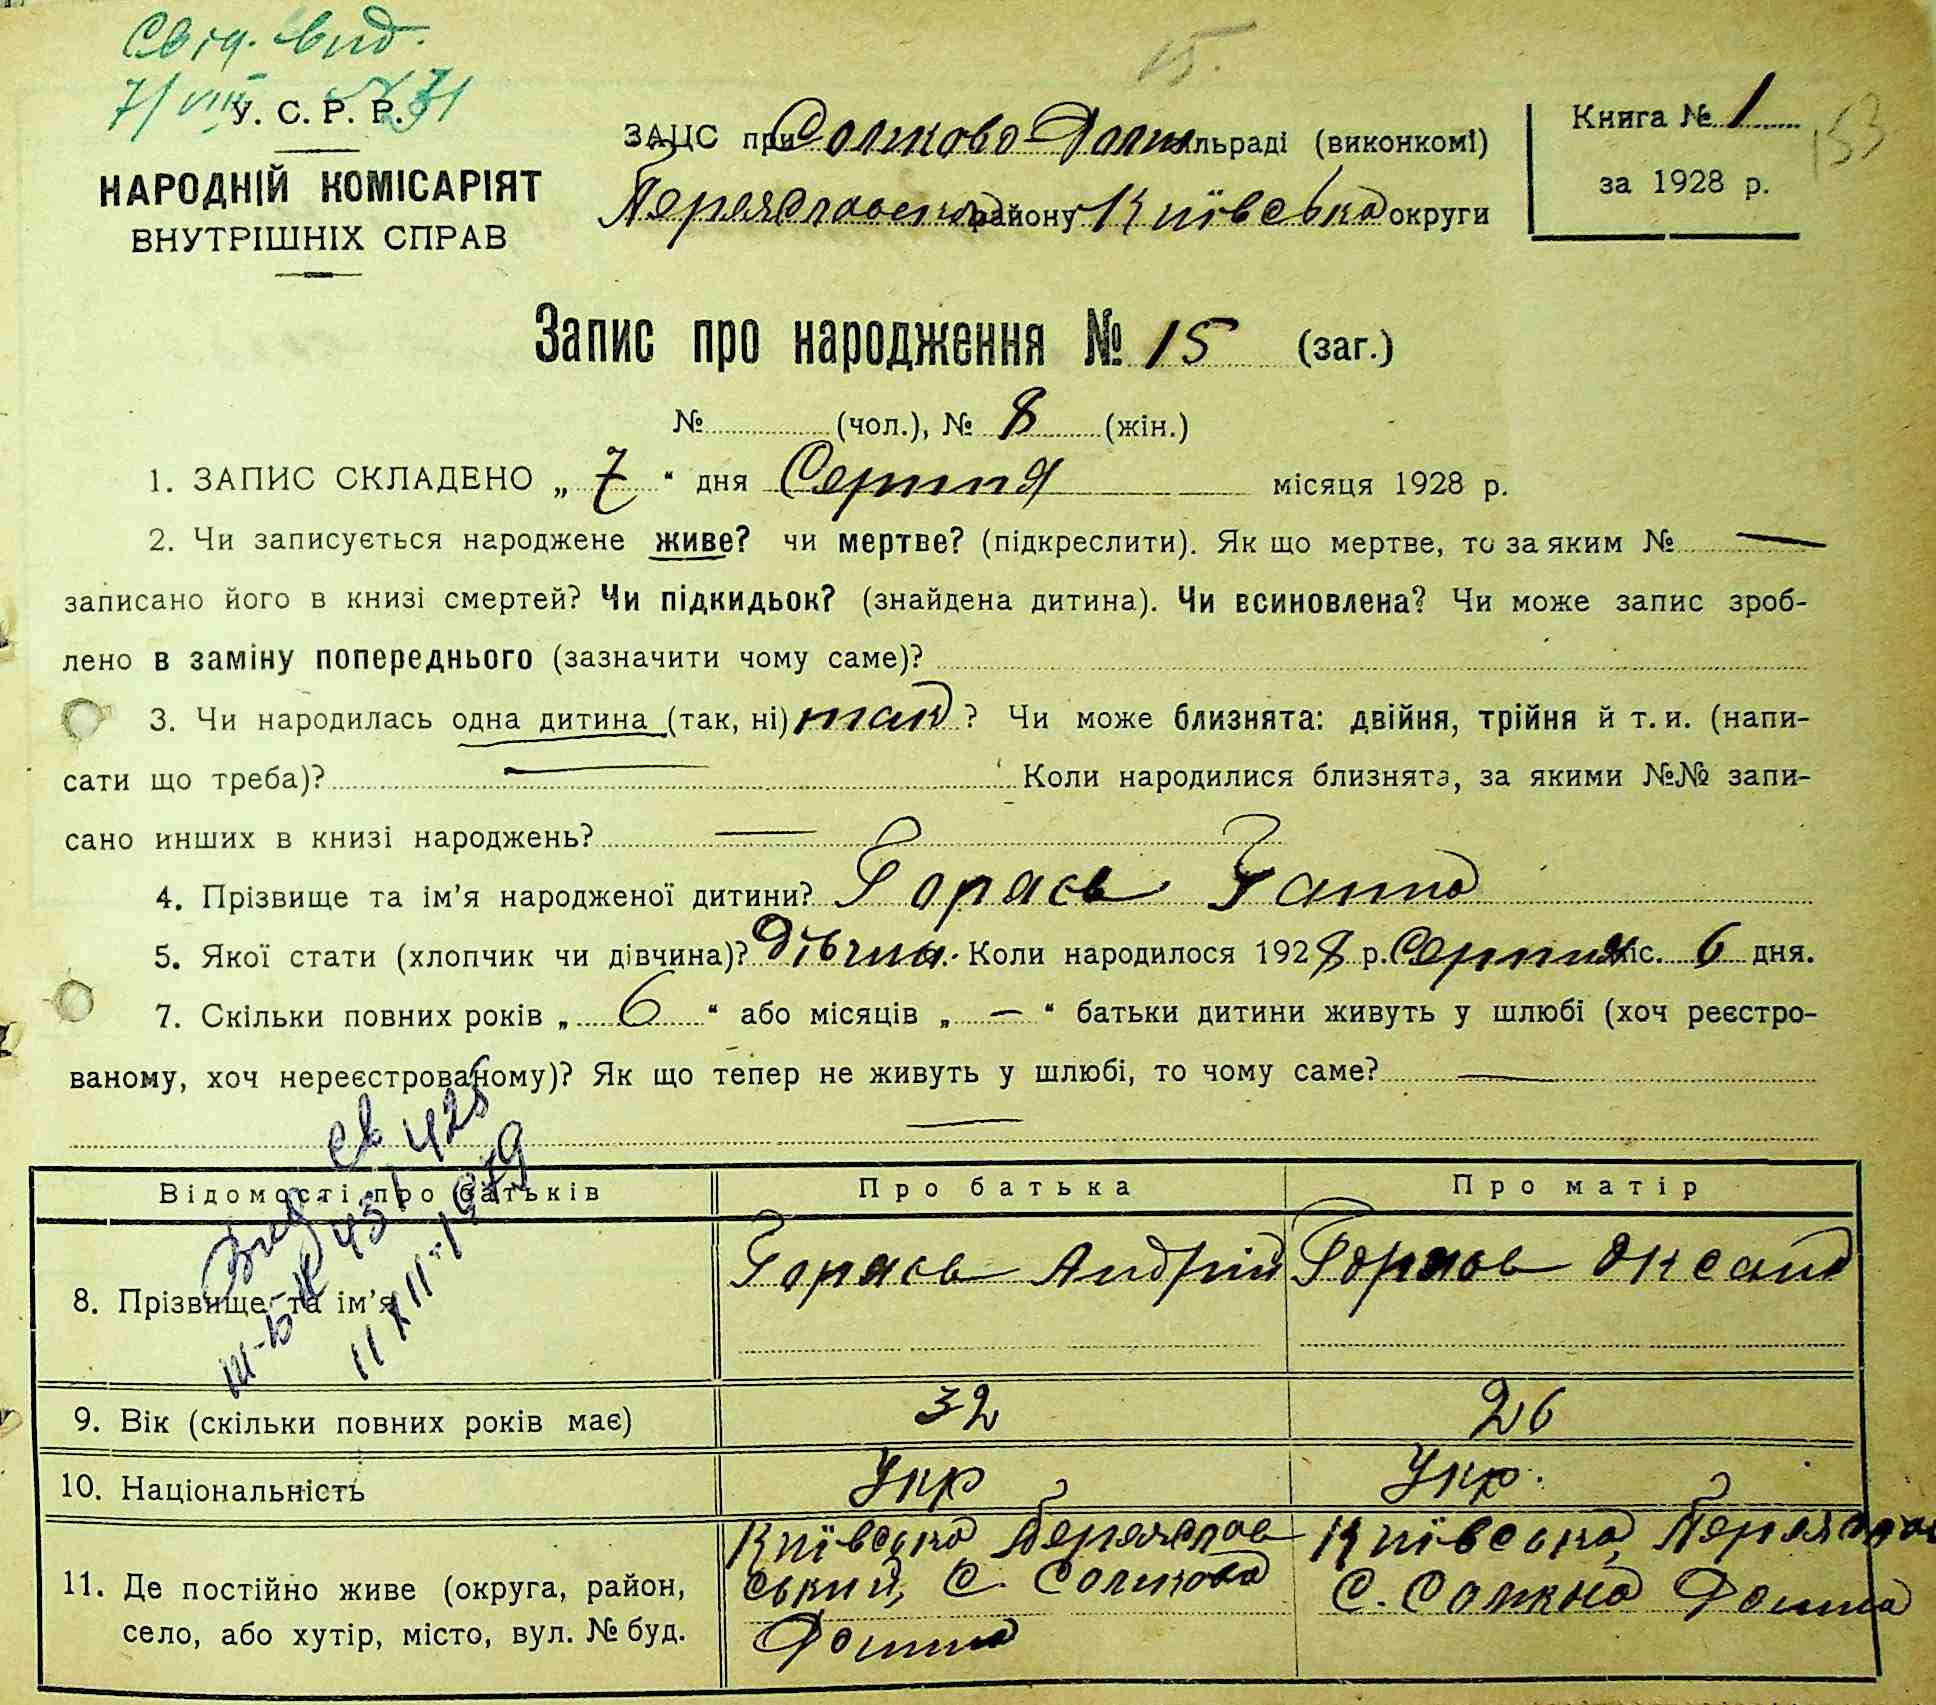 Свід. вид.
7/VIII
У. С. Р. Р.
НАРОДНІЙ КОМІСАРІЯТ
ВНУТРІШНІХ СПРАВ
15.
ЗАЦС при Сомково-Долин льраді (виконкомі)
Переяславском району Київська округи
Книга № 1
за 1928 р.
153
Запис про народження № 15 (заг.)
№ (чол.), № 8 (жін.)
1. ЗАПИС СКЛАДЕНО „ 7 “ дня Серпня місяця 1928 р.
2. Чи записується народжене живе? чи мертве? (підкреслити). Як що мертве, то за яким № —
записано його в книзі смертей? Чи підкидьок? (знайдена дитина). Чи всиновлена? Чи може запис зроб-
лено в заміну попереднього (зазначити чому саме)?
3. Чи народилась одна дитина (так, ні) так ? Чи може близнята: двійня, трійня й т. и. (напи-
сати що треба)? — Коли народилися близнята, за якими №№ запи-
сано инших в книзі народжень? —
4. Прізвище та ім'я народженої дитини? Горясь Ганна
5. Якої стати (хлопчик чи дівчина)? Дівчина. Коли народилося 1928 р. Серпня міс. 6 дня.
7. Скільки повних років „ 6 “ або місяців „ — “ батьки дитини живуть у шлюбі (хоч реєстро-
ваному, хоч нереєстрованому)? Як що тепер не живуть у шлюбі, то чому саме? —
—
Відомості про батьків Про батька Про матір
8. Прізвище та ім'я Горясь Андрій Горясь Оксана
9. Вік (скільки повних років має) 32 26
10. Національність Укр Укр.
11. Де постійно живе (округа, район,
село, або хутір, місто, вул. № буд.
Київська Переяслав
ський, С. Сомкова
Долина
Київська, Переяслав
С. Сомкова Долина